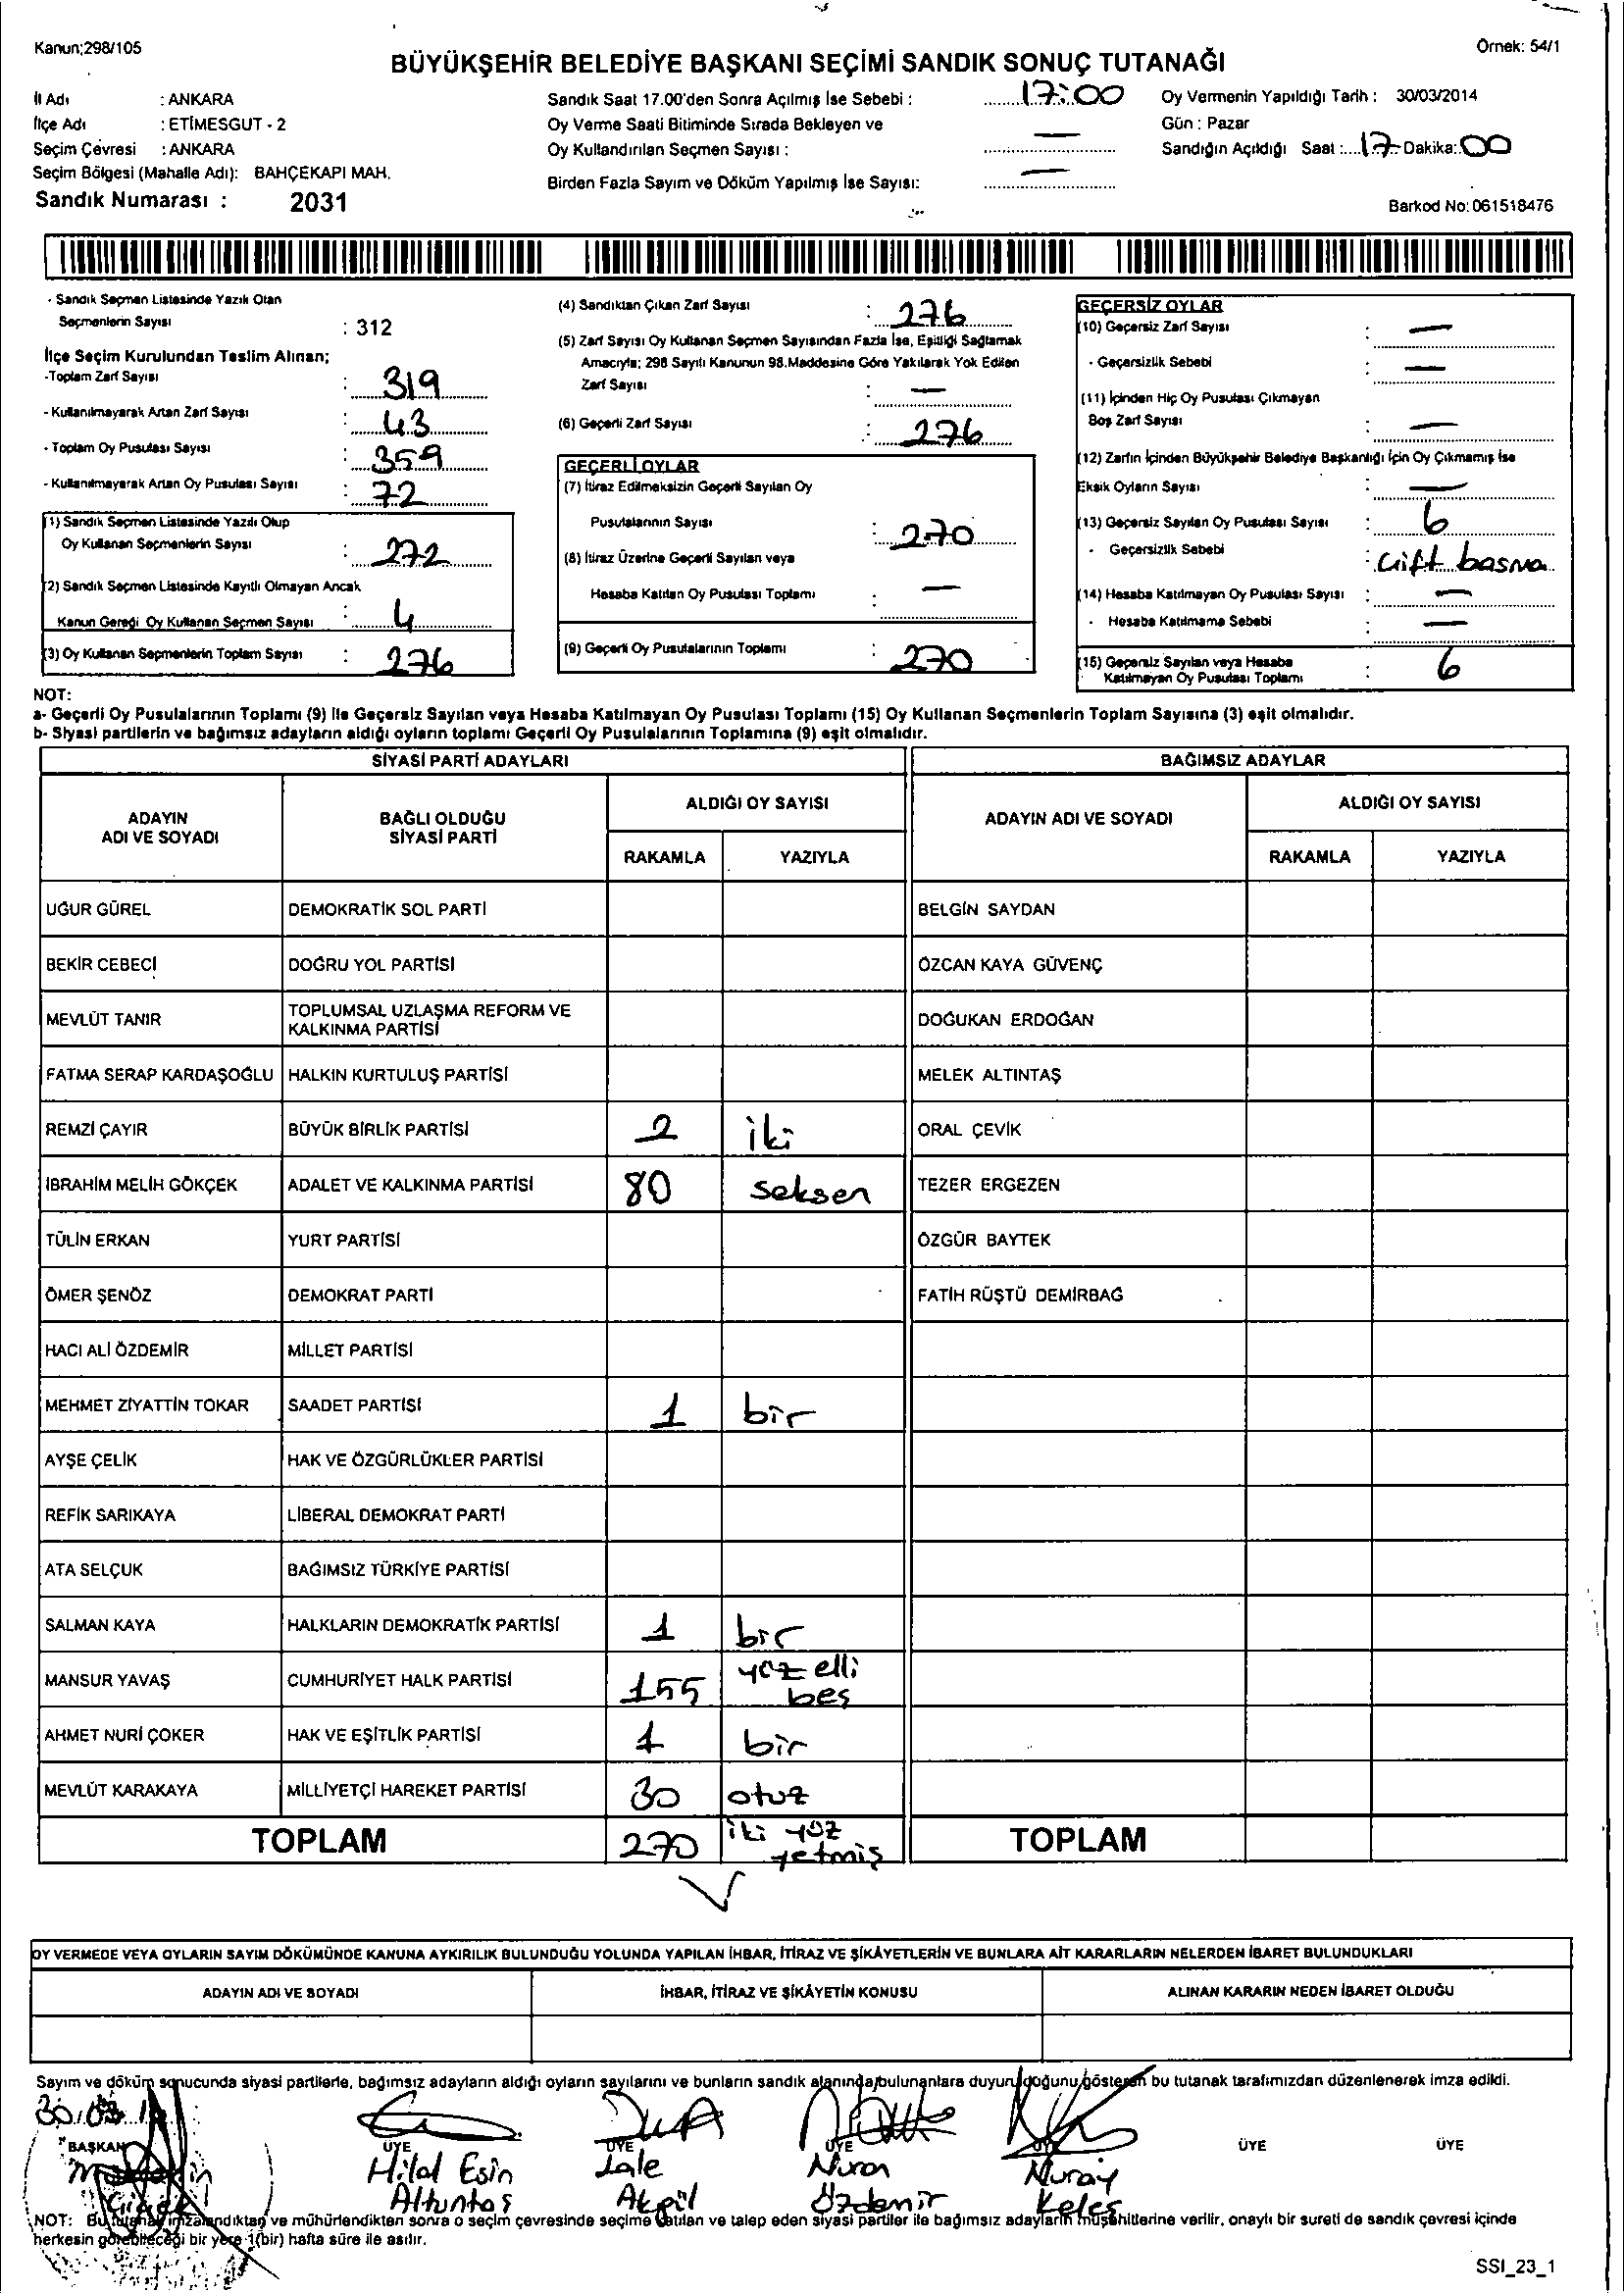 Kanun;298/105
Örnek: 54/1
BÜYÜKŞEHİR BELEDİYE BAŞKANI SEÇİMİ SANDIK SONUÇ TUTANAĞI
İl Adı : ANKARA
İlçe Adı : ETİMESGUT - 2
Seçim Çevresi : ANKARA
Seçim Bölgesi (Mahalle Adı): BAHÇEKAPI MAH.
Sandık Numarası : 2031
Sandık Saat 17.00'den Sonra Açılmış İse Sebebi : 17:00
Oy Verme Saati Bitiminde Sırada Bekleyen ve
Oy Kullandırılan Seçmen Sayısı : —
Birden Fazla Sayım ve Döküm Yapılmış İse Sayısı: —
Oy Vermenin Yapıldığı Tarih : 30/03/2014
Gün : Pazar
Sandığın Açıldığı Saat : 17 Dakika: 00
Barkod No: 061518476
- Sandık Seçmen Listesinde Yazılı Olan
Seçmenlerin Sayısı : 312
İlçe Seçim Kurulundan Teslim Alınan;
-Toplam Zarf Sayısı : 319
- Kullanılmayarak Artan Zarf Sayısı : 43
- Toplam Oy Pusulası Sayısı : 359
- Kullanılmayarak Artan Oy Pusulası Sayısı : 72
(1) Sandık Seçmen Listesinde Yazılı Olup
Oy Kullanan Seçmenlerin Sayısı : 272
(2) Sandık Seçmen Listesinde Kayıtlı Olmayan Ancak
Kanun Gereği Oy Kullanan Seçmen Sayısı : 4
(3) Oy Kullanan Seçmenlerin Toplam Sayısı : 276
(4) Sandıktan Çıkan Zarf Sayısı : 276
(5) Zarf Sayısı Oy Kullanan Seçmen Sayısından Fazla İse, Eşitliği Sağlamak
Amacıyla; 298 Sayılı Kanunun 98.Maddesine Göre Yakılarak Yok Edilen
Zarf Sayısı : —
(6) Geçerli Zarf Sayısı : 276
GEÇERLİ OYLAR
(7) İtiraz Edilmeksizin Geçerli Sayılan Oy
Pusulalarının Sayısı : 270
(8) İtiraz Üzerine Geçerli Sayılan veya
Hesaba Katılan Oy Pusulası Toplamı : —
(9) Geçerli Oy Pusulalarının Toplamı : 270
GEÇERSİZ OYLAR
(10) Geçersiz Zarf Sayısı : —
- Geçersizlik Sebebi : —
(11) İçinden Hiç Oy Pusulası Çıkmayan
Boş Zarf Sayısı : —
(12) Zarfın İçinden Büyükşehir Belediye Başkanlığı İçin Oy Çıkmamış İse
Eksik Oyların Sayısı : —
(13) Geçersiz Sayılan Oy Pusulası Sayısı : 6
- Geçersizlik Sebebi : Çift basma
(14) Hesaba Katılmayan Oy Pusulası Sayısı : —
- Hesaba Katılmama Sebebi : —
(15) Geçersiz Sayılan veya Hesaba
Katılmayan Oy Pusulası Toplamı : 6
NOT:
a- Geçerli Oy Pusulalarının Toplamı (9) ile Geçersiz Sayılan veya Hesaba Katılmayan Oy Pusulası Toplamı (15) Oy Kullanan Seçmenlerin Toplam Sayısına (3) eşit olmalıdır.
b- Siyasi partilerin ve bağımsız adayların aldığı oyların toplamı Geçerli Oy Pusulalarının Toplamına (9) eşit olmalıdır.
SİYASİ PARTİ ADAYLARI BAĞIMSIZ ADAYLAR
ADAYIN ADI VE SOYADI BAĞLI OLDUĞU SİYASİ PARTİ ALDIĞI OY SAYISI ADAYIN ADI VE SOYADI ALDIĞI OY SAYISI
RAKAMLA YAZIYLA RAKAMLA YAZIYLA
UĞUR GÜREL DEMOKRATİK SOL PARTİ BELGİN SAYDAN
BEKİR CEBECİ DOĞRU YOL PARTİSİ ÖZCAN KAYA GÜVENÇ
MEVLÜT TANIR TOPLUMSAL UZLAŞMA REFORM VE KALKINMA PARTİSİ DOĞUKAN ERDOĞAN
FATMA SERAP KARDAŞOĞLU HALKIN KURTULUŞ PARTİSİ MELEK ALTINTAŞ
REMZİ ÇAYIR BÜYÜK BİRLİK PARTİSİ 2 iki ORAL ÇEVİK
İBRAHİM MELİH GÖKÇEK ADALET VE KALKINMA PARTİSİ 80 seksen TEZER ERGEZEN
TÜLİN ERKAN YURT PARTİSİ ÖZGÜR BAYTEK
ÖMER ŞENÖZ DEMOKRAT PARTİ FATİH RÜŞTÜ DEMİRBAĞ
HACI ALİ ÖZDEMİR MİLLET PARTİSİ
MEHMET ZİYATTİN TOKAR SAADET PARTİSİ 1 bir
AYŞE ÇELİK HAK VE ÖZGÜRLÜKLER PARTİSİ
REFİK SARIKAYA LİBERAL DEMOKRAT PARTİ
ATA SELÇUK BAĞIMSIZ TÜRKİYE PARTİSİ
SALMAN KAYA HALKLARIN DEMOKRATİK PARTİSİ 1 bir
MANSUR YAVAŞ CUMHURİYET HALK PARTİSİ 155 yüz elli beş
AHMET NURİ ÇOKER HAK VE EŞİTLİK PARTİSİ 1 bir
MEVLÜT KARAKAYA MİLLİYETÇİ HAREKET PARTİSİ 30 otuz
TOPLAM 270 iki yüz yetmiş TOPLAM
OY VERMEDE VEYA OYLARIN SAYIM DÖKÜMÜNDE KANUNA AYKIRILIK BULUNDUĞU YOLUNDA YAPILAN İHBAR, İTİRAZ VE ŞİKÂYETLERİN VE BUNLARA AİT KARARLARIN NELERDEN İBARET BULUNDUKLARI
ADAYIN ADI VE SOYADI İHBAR, İTİRAZ VE ŞİKÂYETİN KONUSU ALINAN KARARIN NEDEN İBARET OLDUĞU
Sayım ve döküm sonucunda siyasi partilerle, bağımsız adayların aldığı oyların sayılarını ve bunların sandık alanında bulunanlara duyurulduğunu gösteren bu tutanak tarafımızdan düzenlenerek imza edildi.
BAŞKAN ÜYE ÜYE ÜYE ÜYE ÜYE ÜYE
Hilal Esin Lale Nuran Nuray
Altuntaş Akgül Özdemir Keleş
NOT: Bu tutanak imzalandıktan ve mühürlendikten sonra o seçim çevresinde seçime katılan ve talep eden siyasi partiler ile bağımsız adayların müşahitlerine verilir, onaylı bir sureti de sandık çevresi içinde
herkesin görebileceği bir yere 1(bir) hafta süre ile asılır.
SSI_23_1